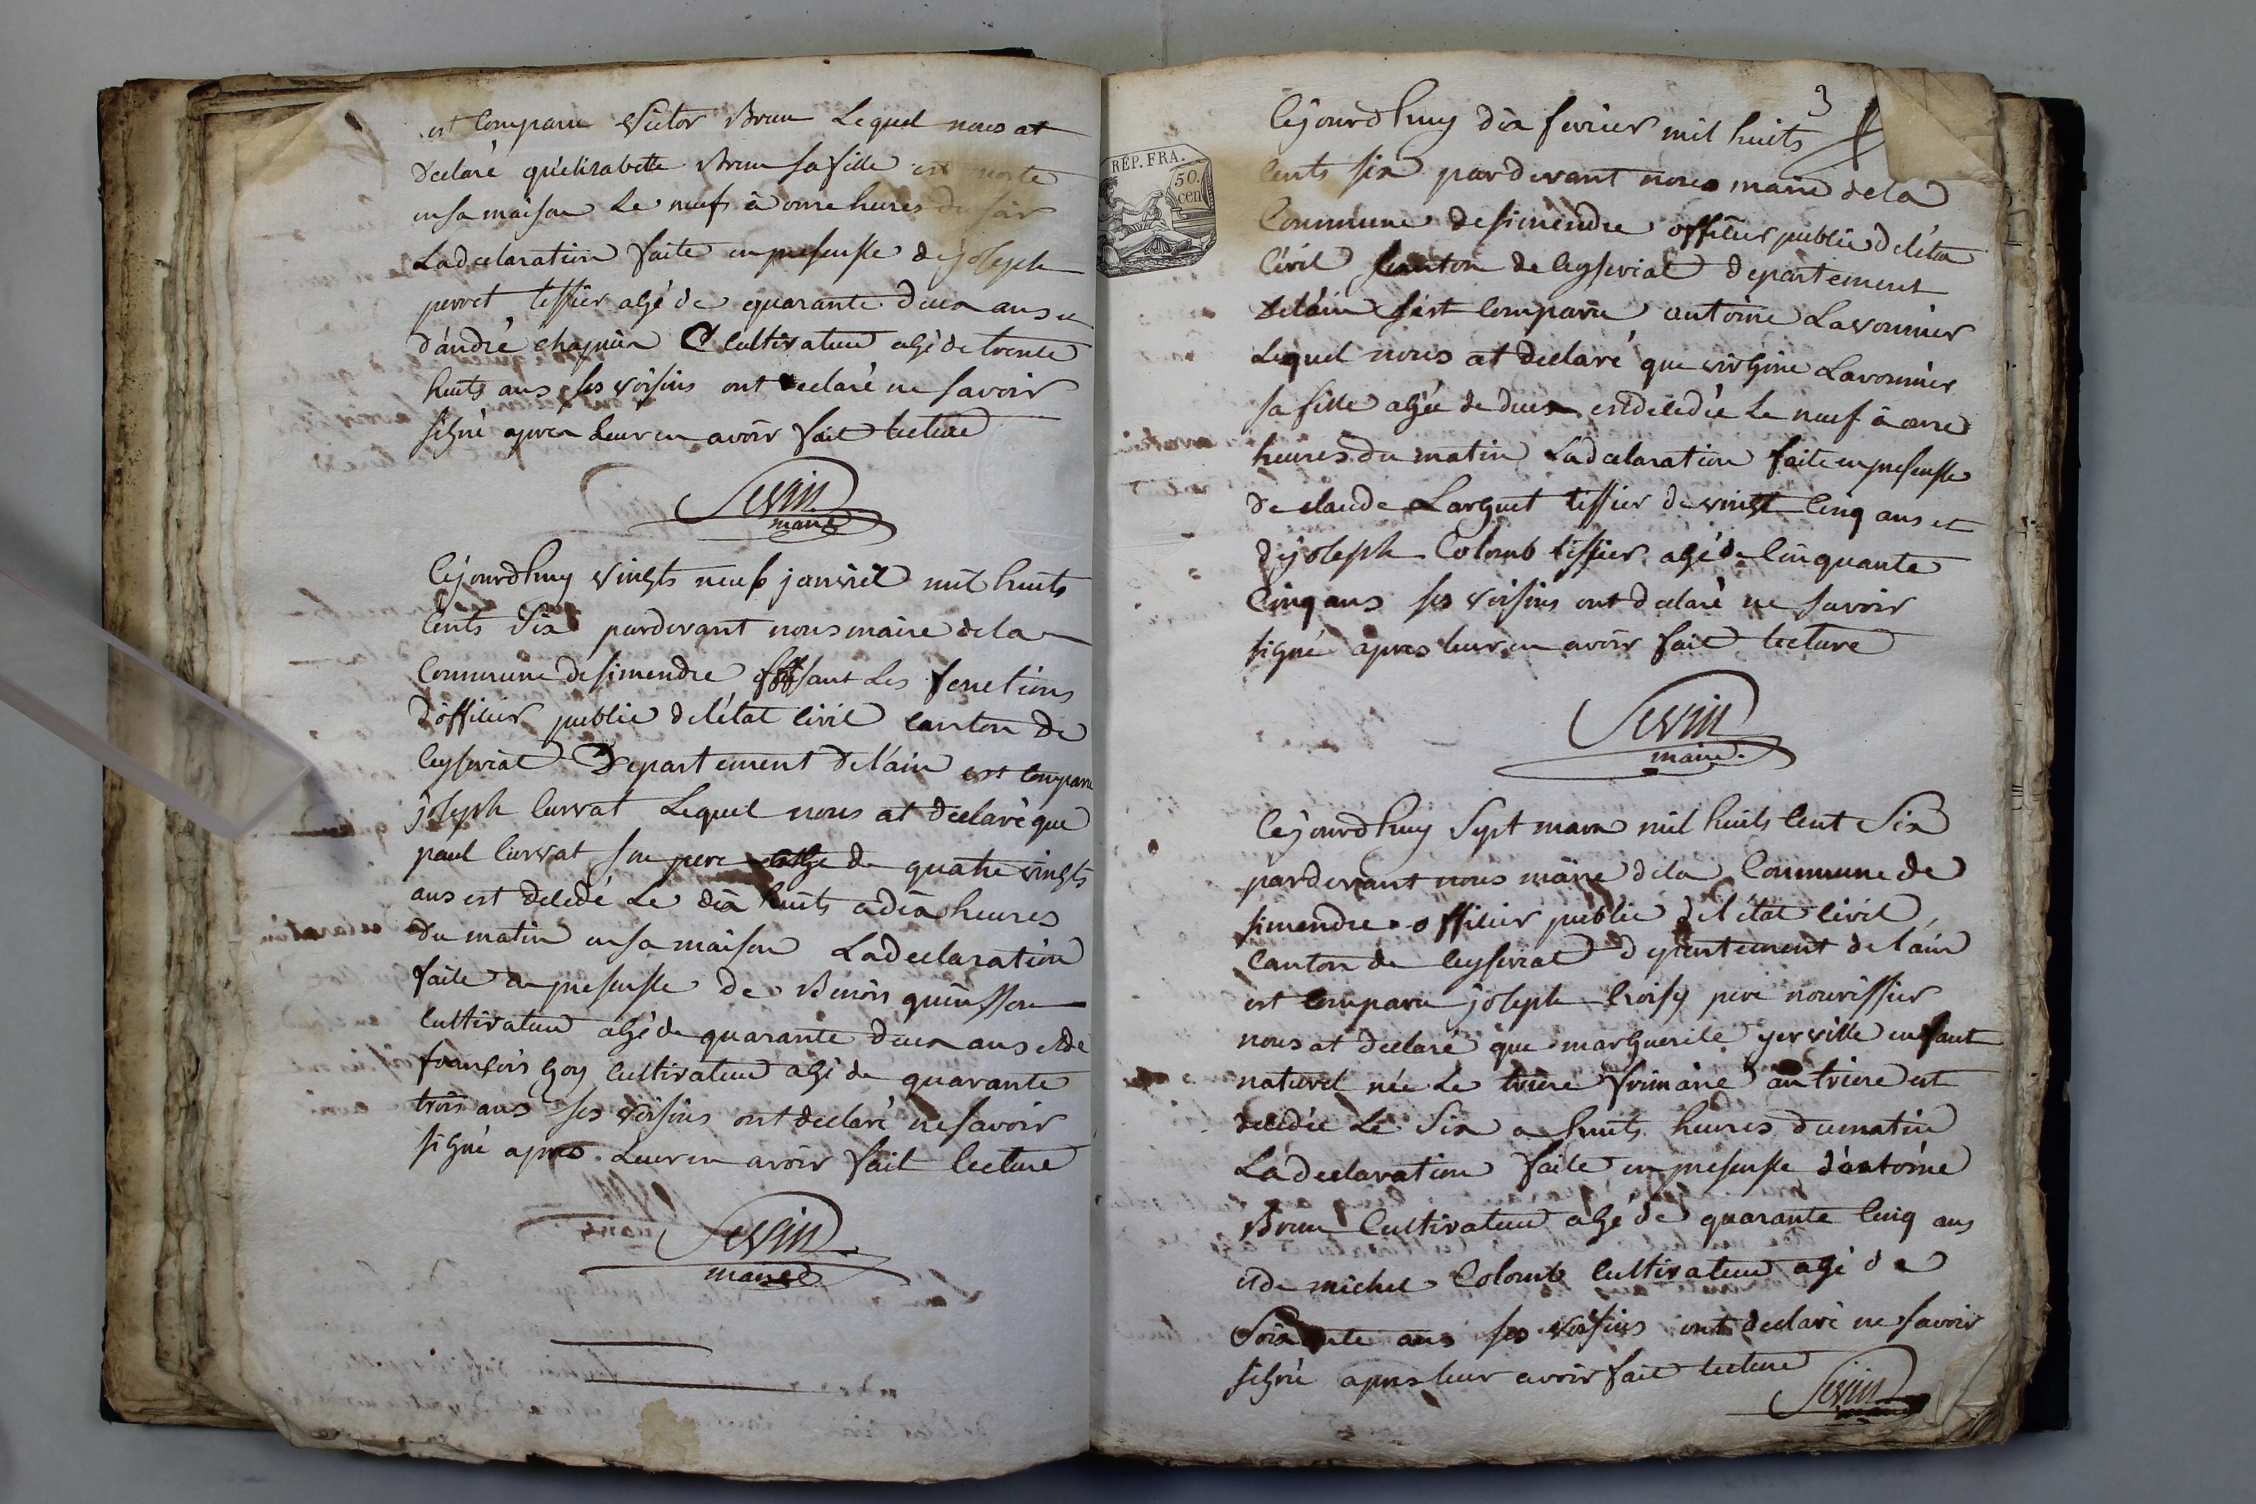 est Comparu Victor Brun Lequel nous at
declaré qu'elisabette Brun sa fille est morte
en sa maison Le neuf à onze heures du soir
La declaration faite en presensse de joseph
perret tessier agé de quarante deux ans et
d'andré chapuis Cultivateur agé de trente
huits ans ses voisins ont declaré ne savoir
signé apres Leur en avoir fait lecture
Sevin
maire
Cejourdhuy vingts neuf janvier mil huits
Cents Six pardevant nous maire de la
Commune de simendre fesant Les fonctions
d'officier public de l'état Civil canton de
Ceyseriat Departement de l'ain est comparu
joseph Curvat Lequel nous at declaré que
paul Curvat son pere de quatre vingts
ans est décédé Le dix huits a dix heures
du matin en sa maison La declaration
faite en presensse de Benoit
Cultivateur agé de quarante deux ans et de
françois Goy Cultivateur agé de quarante
trois ans ses voisins ont declaré ne savoir
signé apres Leur en avoir fait lecture
Sevin
maire
3
Cejourdhuy dix fevrier mil huits
RÉP. FRA.
50.
cen
Cents six pardevant nous maire de la
Commune de simendre officier public de l'éta
Civil Canton de Ceyseriat departement
de l'ain s'est Comparu antoine Lavonnier
Lequel nous at declaré que virgine Lavonnier
sa fille agée de deux est décédée Le neuf à onze
heures du matin La declaration faite en presensse
de claude Larguet tessier de vingt Cinq ans et
de joseph Colomb tessier agé de Cinquante
Cinq ans ses voisins ont declaré ne savoir
signé apres leur en avoir fait lecture
Sevin
maire.
Cejourdhuy Sept mars mil huits Cent Six
pardevant nous maire de la Commune de
simendre officier public de l'état Civil
Canton de Ceyseriat departement de l'ain
est Comparu joseph Croisy pere nourissier
nous at declaré que marguerite yerville enfant
naturel née Le treize frimaire an treize est
décédée Le Six a huits heures du matin
La declaration faite en presensse d'antoine
Brun Cultivateur agé de quarante Cinq ans
et de michel Colomb Cultivateur agé de
Soixante ans ses voisins ont declaré ne savoir
signé apres leur avoir fait lecture
Sevin
maire